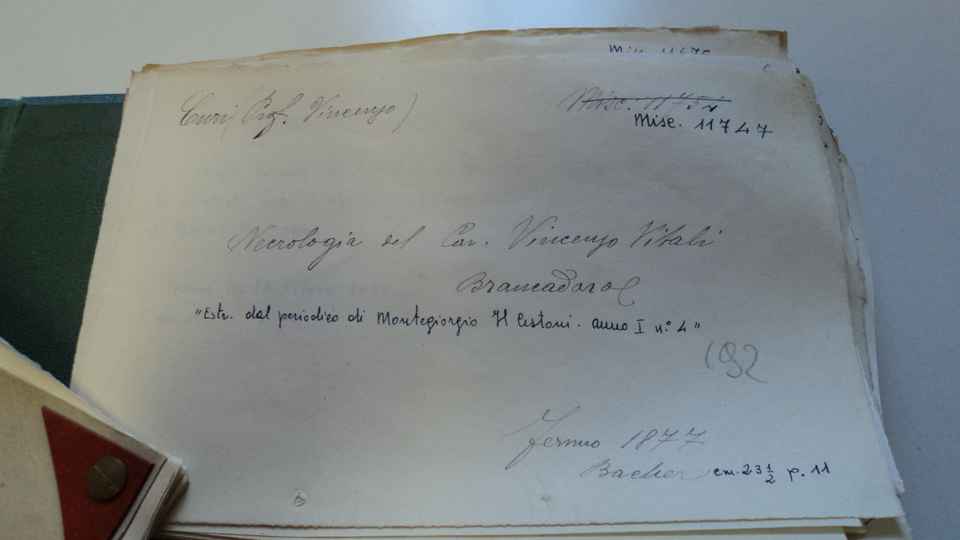 Curi Prof. Vincenzo)
Misc. 11747
Necrologia del Cav. Vincenzo Vitali
Brancadoro
"Estr. dal periodico di Montegiorgio Il Cestoni. anno I n.º 4"
192
Fermo 1877
Bacher cm. 23 1/2 p. 11